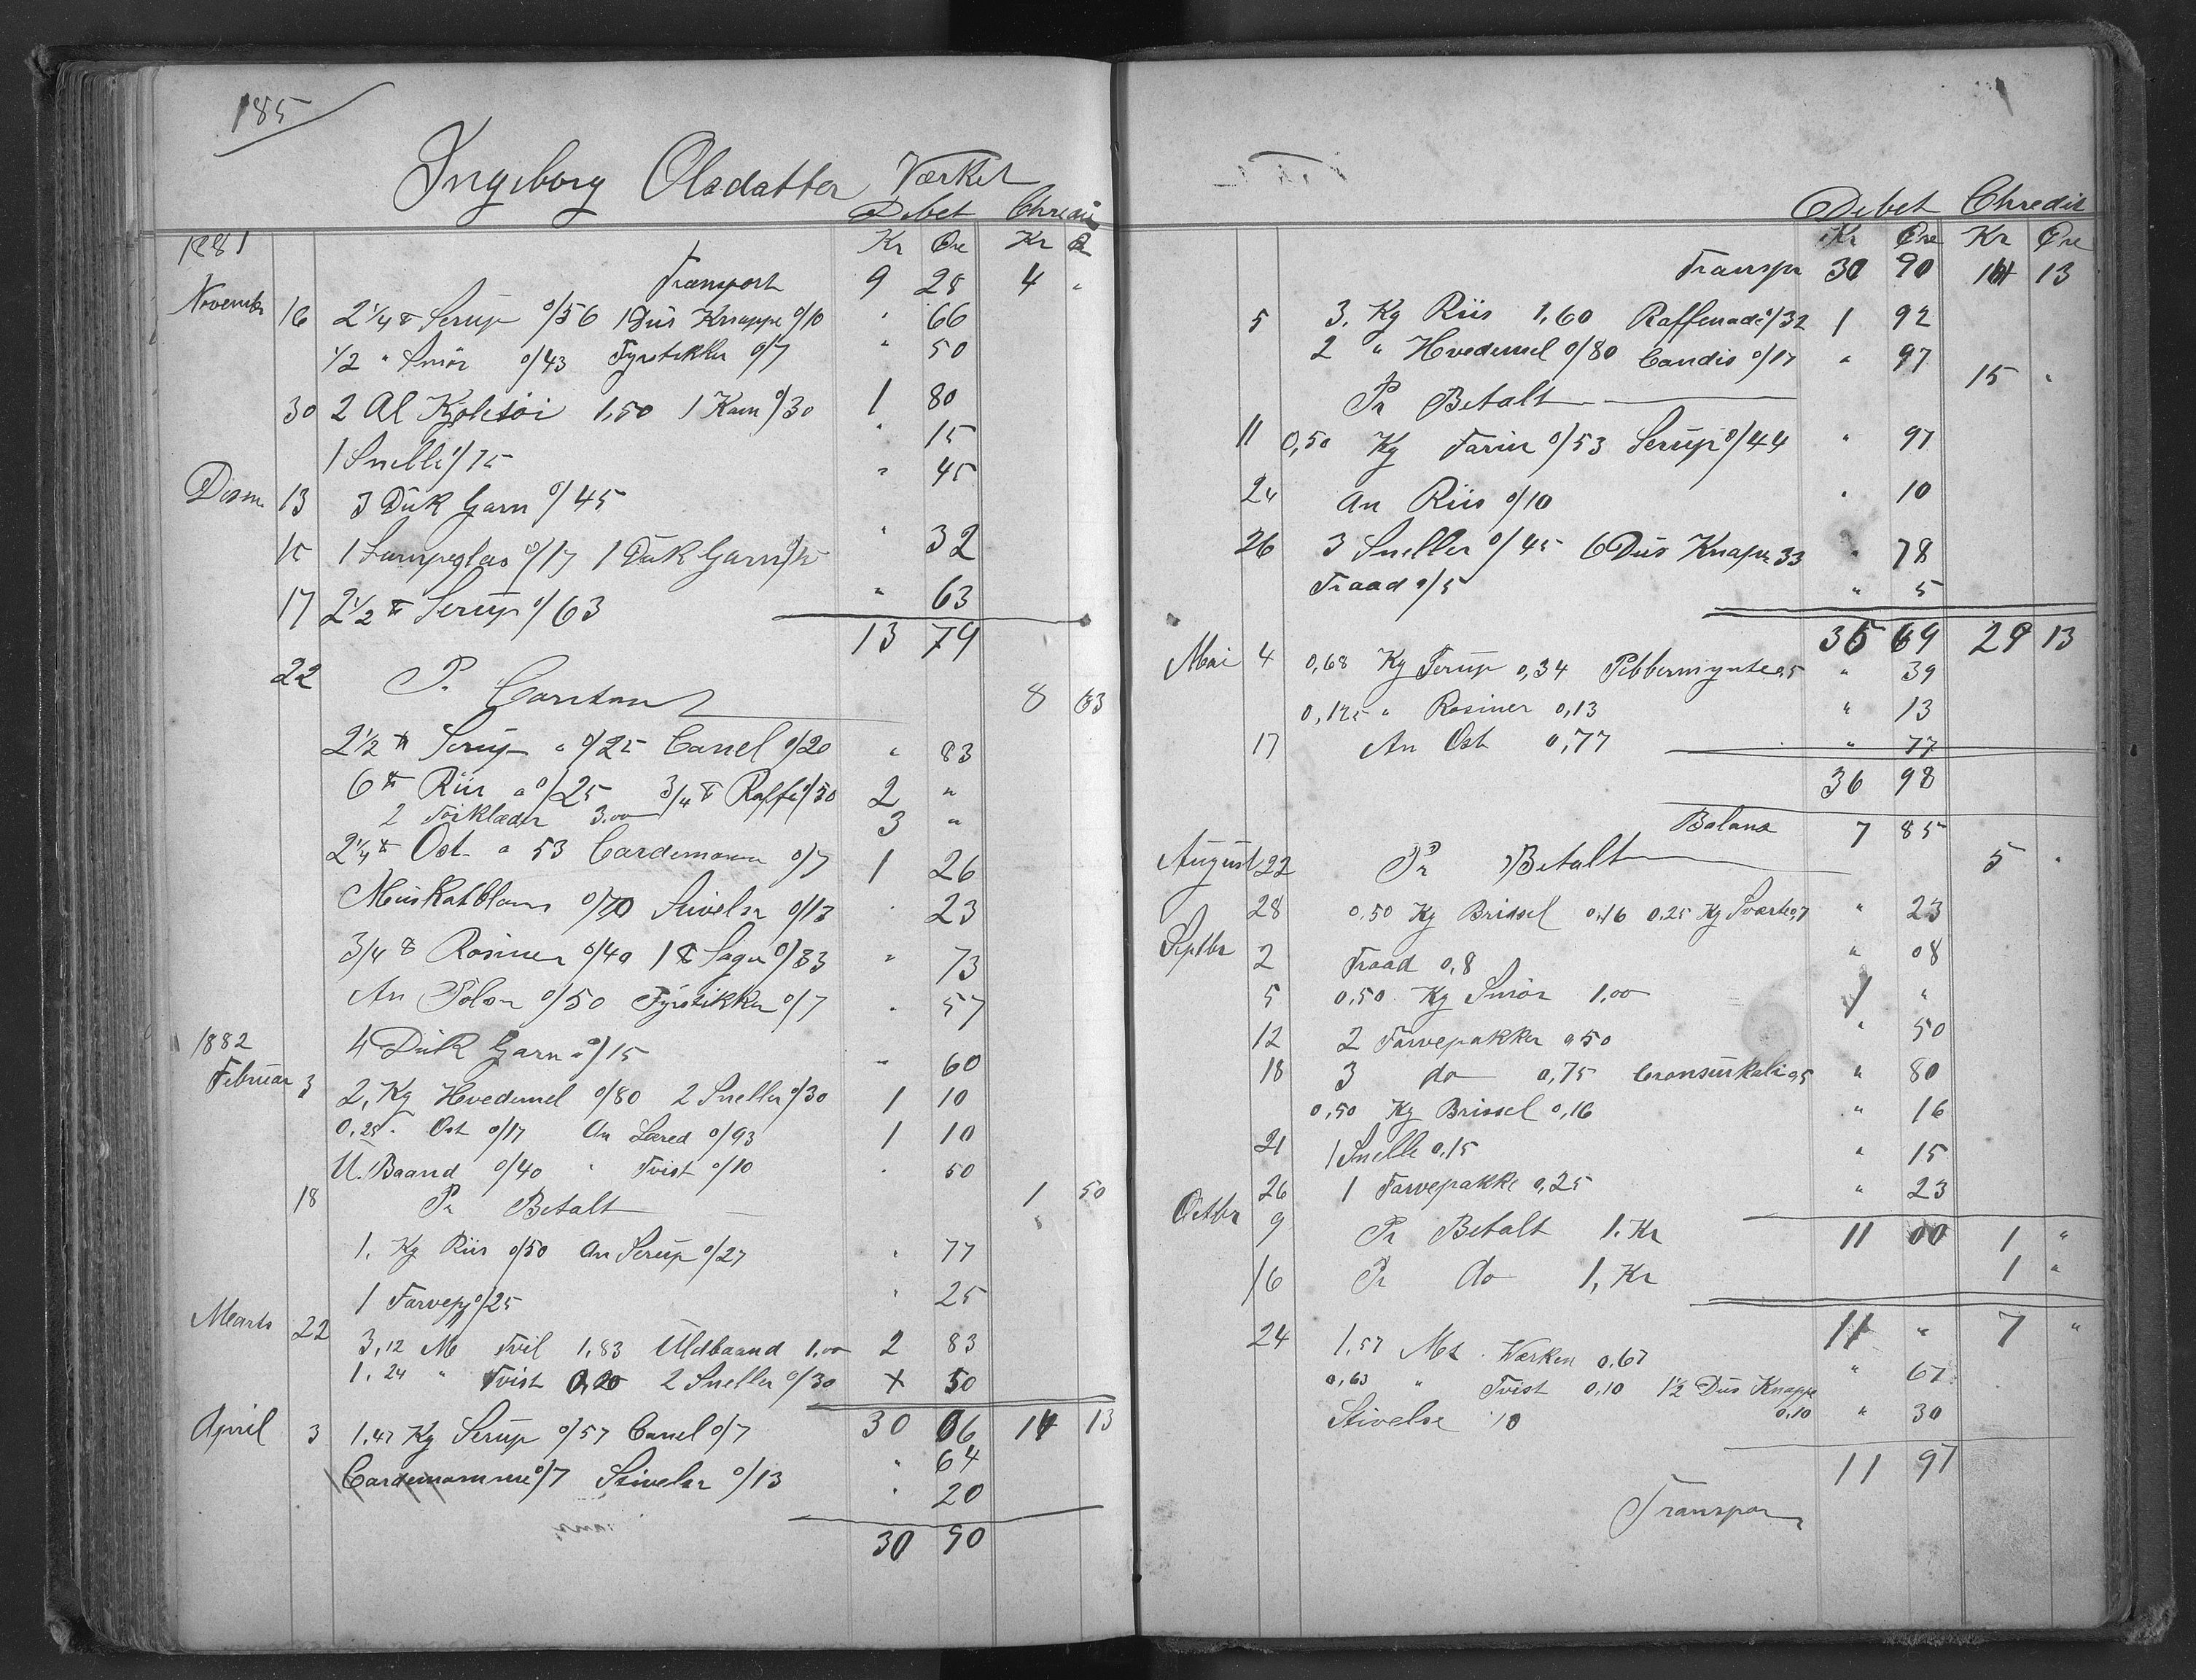 185
Ingeborg Olsdatter Værket
Debet Chredit
1881 Kr Øre Kr Øre
Transport 9 28 4 "
Novembr 16 2 1/4 ℔ Serup 0/56 1 Dus Knappe 0/10 " 66
1/2 " Smör 0/43 Fyrstikker 0/7 " 50
30 2 Al Kjoletöi 1,50 1 Kam 0/30 1 80
1 Snelle 0/15 " 15
Desm. 13 3 Duk Garn 0/45 " 45
15 1 Lampeglas 0/17 1 Duk Garn 0/15 " 32
17 2 1/2 ℔ Serup 0/63 " 63
13 79
22 P. Carstens 8 63
2 1/2 ℔ Serup a 0/25 Canel 0/20 " 83
6 ℔ Riis a 0/25 3/4 ℔ Raffi 0/50 2 "
2 Törklæder 3.00 3 "
2 1/4 ℔ Ost a 53 Cardemomme 0/7 1 26
Muskatblom 0/10 Stivelse 0/13 " 23
3/4 ℔ Rosiner 0/40 1 ℔ Sagu 0/33 " 73
An Pölse 0/50 Fyrstikker 0/7 " 57
1882 4 Duk Garn a 0/15 " 60
Februar 3 2, Kg Hvedemel 0/80 2 Sneller 0/30 1 10
0,25 " Ost 0/17 An Læred 0/93 1 10
U. Baand 0/40 " Tvist 0/10 " 50
18 Pr Betalt 1 50
1, Kg Riis 0/50 An Serup 0/27 " 77
1 Farvepj 0/25 " 25
Marts 22 3,12 M Tvil 1,83 Uldbaand 1,00 2 83
1,24 " Tvist 0,20 2 Sneller 0/30 50
30 06 14 13
April 3 1,47 Kg Serup 0/57 Canel 0/7 " 64
Cardemomme 0/7 Stivelse 0/13 " 20
30 90
Debet Chredit
Kr Øre Kr Øre
Transpr 30 90 14 13
5 3, Kg Riis 1,60 Raffenade 0/32 1 92
2 " Hvedemel 0/80 Candis 0/17 " 97
Pr Betalt 15 "
11 0,50 Kg Farin 0/53 Serup 0/44 " 97
24 An Riis 0/10 " 10
26 3 Sneller 0/45 6 Dus Knape 33 " 78
Traad 0/5 " 5
35 69 29 13
Mai 4 0,68 Kg Serup 0,34 Pebbermynte 0,5 " 39
0,125 " Rosiner 0,13 " 13
17 An Ost 0,77 " 77
36 98
Balans 7 85
August 22 Pr Betalt 5 "
28 0,50 Kg Brissel 0,16 0,25 Kg Sværte 0,7 " 23
Septbr 2 Traad 0,8 " 08
5 0,50 Kg Smör 1,00 1 "
12 2 Farvepakker 0 50 " 50
18 3 do 0,75 Cromsurkali 0,5 " 80
0,50 Kg Brissel 0,16 " 16
21 1 Snelle 0,15 " 15
26 1 Farvepakke 0,25 " 23
Octbr 9 Pr Betalt 1. Kr 11 00 1 "
16 Pr do 1, Kr 1 "
11 " 7 "
24 1,57 Mt Værken 0,67 " 67
0,63 " Tvist 0,10 1/2 Dus Knappe 0,10
Stivelse 10 " 30
11 97
Transpor